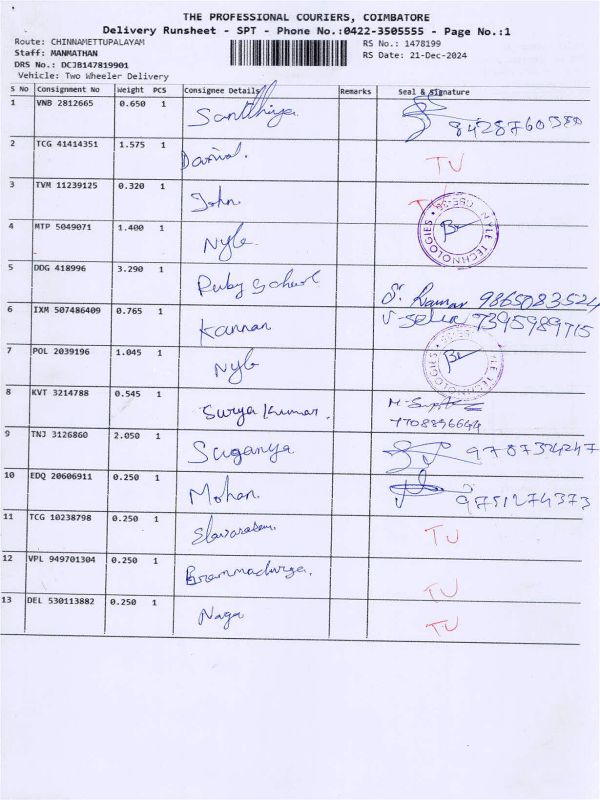 THE PROFESSIONAL COURIERS, COIMBATORE
Delivery Runsheet - SPT - Phone No.:0422-3505555 - Page No.:1
Route: CHINNAMETTUPALAYAM RS No.: 1478199
Staff: MANMATHAN RS Date: 21-Dec-2024
DRS No.: DCJB147819901
Vehicle: Two Wheeler Delivery
S No Consignment No Weight PCS Consignee Details Remarks Seal & Signature
1 VNB 2812665 0.650 1 Santhiya 8428760380
2 TCG 41414351 1.575 1 TU
3 TVM 11239125 0.320 1 John
4 MTP 5049071 1.400 1 Nyle
NYLE TECHNOLOGIES
5 DDG 418996 3.290 1 Ruby School S. Raman 9865083524
6 IXM 507486409 0.765 1 Kannan 7395989715
7 POL 2039196 1.045 1 Nyle
NYLE TECHNOLOGIES
8 KVT 3214788 0.545 1 Surya Kumar. 7708896644
9 TNJ 3126860 2.050 1 Suganya
10 EDQ 20606911 0.250 1 Mohan 9751274373
11 TCG 10238798 0.250 1 Elavarasan. TU
12 VPL 949701304 0.250 1 TU
13 DEL 530113882 0.250 1 Naga TU